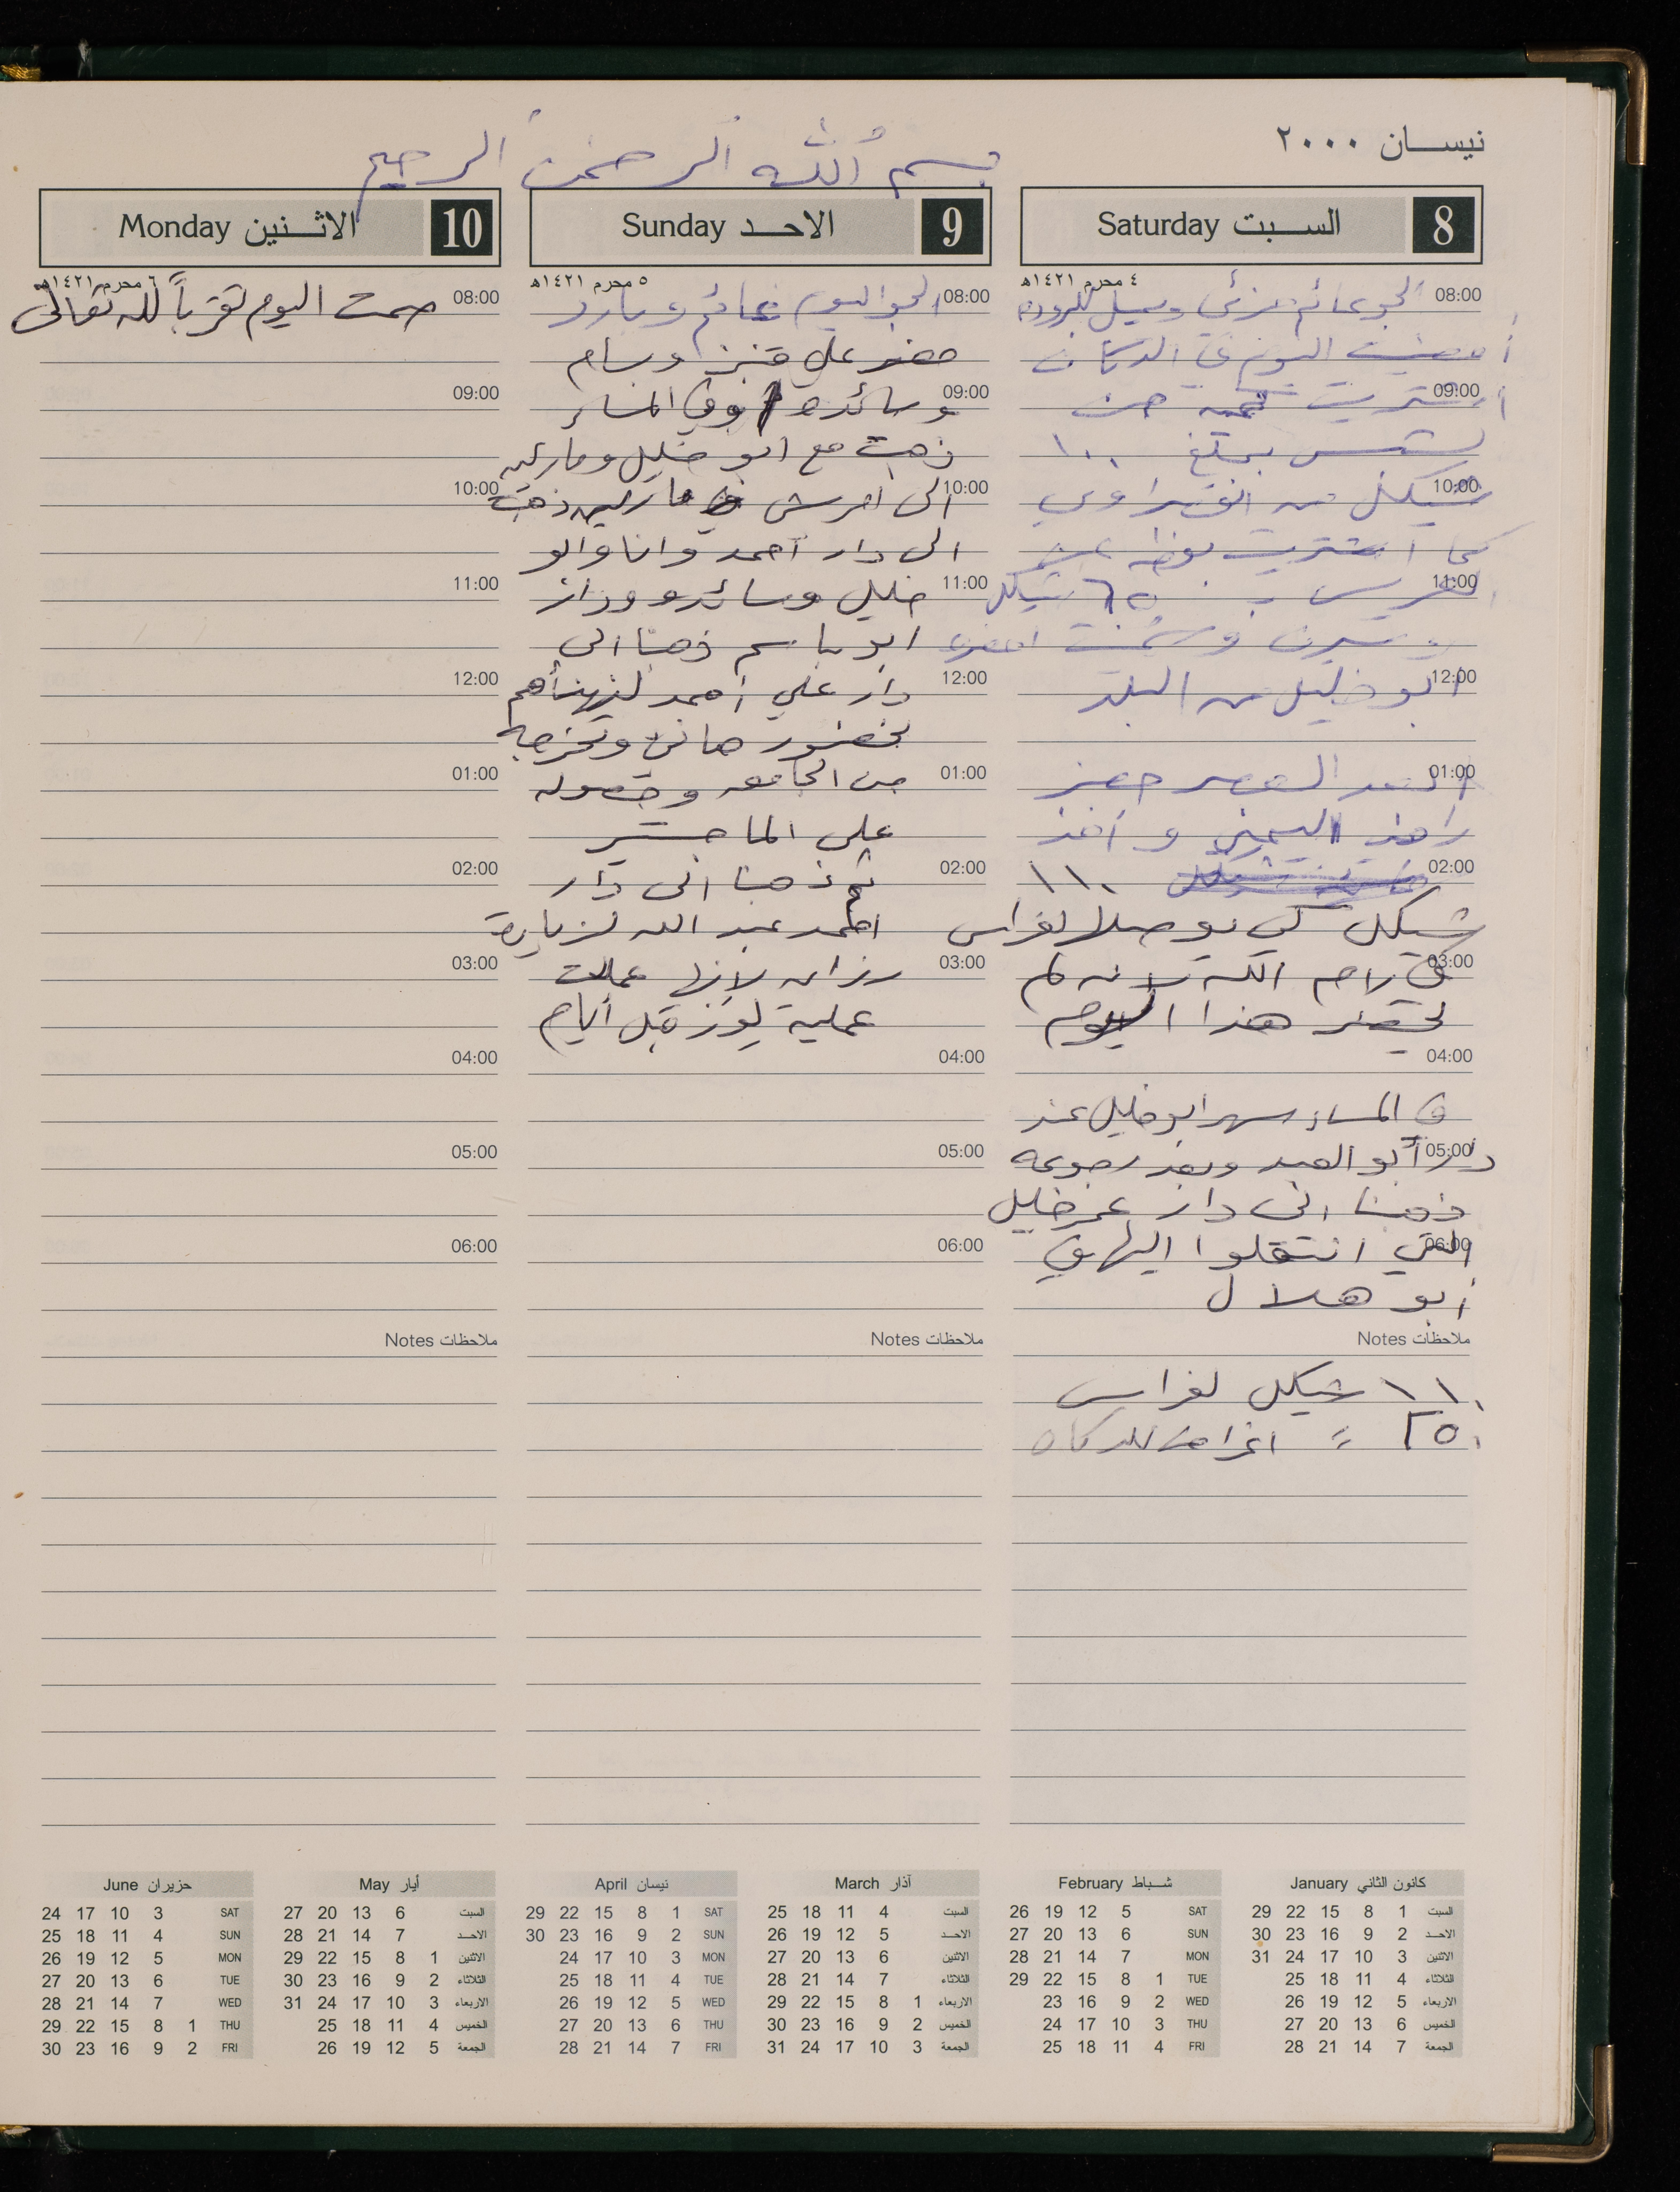 نيسان ٢٠٠٠
بسم الله الرحمن الرحيم
8 السبت Saturday
٤ محرم ١٤٢١هـ
08:00 الجو غائم جزئي ويميل للبرودة
أمضيت اليوم في الدكان
09:00 أشتريت كمية من
بمبلغ ١٠٠
10:00 شيكل من
كما اشتريت بوظه من
11:00 العريس بـ ٦٥ شيكل
أحضره
12:00 ابو خليل من البلد
01:00 بعد العصر حضر
و أخذ
02:00 ١١٠
شيكل كي يوصلها لفراس
03:00 في رام الله لانه لم
يحضر هذا اليوم
04:00
في المساء سهر ابو خليل عند
05:00 دار أبو العبد وبعد رجوعه
ذهبنا الى دار عمر خليل
06:00 التي انتقلوا اليها في
أبو هلال
ملاحظات Notes
١١٠ شيكل لفراس
٢٥٠ = اغراض للدكان
9 الاحد Sunday
٥ محرم ١٤٢١هـ
08:00 الجو اليوم غائم وبارد
حضر علي وبسام
09:00 وسائده وفي المساء
ذهبت مع ابو خليل وماريه
10:00 الى ذهبت
الى دار احمد وانا وابو
11:00 خليل وسائده ودار
ابو باسم ذهبنا الى
12:00 دار علي احمد لنهنأهم
بحضور هاني وتخرجه
01:00 من الجامعه وحصوله
على الماجستير
02:00 ثم ذهبنا الى دار
احمد عبد الله لزيارة
03:00 رزان لانها عملت
عملية لوز قبل أيام
04:00
05:00
06:00
ملاحظات Notes
10 الاثنين Monday
٦ محرم ١٤٢١هـ
08:00 صمت اليوم تقرباً لله تعالى
09:00
10:00
11:00
12:00
01:00
02:00
03:00
04:00
05:00
06:00
ملاحظات Notes
كانون الثاني January
السبت 1 8 15 22 29
الاحد 2 9 16 23 30
الاثنين 3 10 17 24 31
الثلاثاء 4 11 18 25
الاربعاء 5 12 19 26
الخميس 6 13 20 27
الجمعة 7 14 21 28
شباط February
SAT 5 12 19 26
SUN 6 13 20 27
MON 7 14 21 28
TUE 1 8 15 22 29
WED 2 9 16 23
THU 3 10 17 24
FRI 4 11 18 25
آذار March
السبت 4 11 18 25
الاحد 5 12 19 26
الاثنين 6 13 20 27
الثلاثاء 7 14 21 28
الاربعاء 1 8 15 22 29
الخميس 2 9 16 23 30
الجمعة 3 10 17 24 31
نيسان April
SAT 1 8 15 22 29
SUN 2 9 16 23 30
MON 3 10 17 24
TUE 4 11 18 25
WED 5 12 19 26
THU 6 13 20 27
FRI 7 14 21 28
أيار May
السبت 6 13 20 27
الاحد 7 14 21 28
الاثنين 1 8 15 22 29
الثلاثاء 2 9 16 23 30
الاربعاء 3 10 17 24 31
الخميس 4 11 18 25
الجمعة 5 12 19 26
حزيران June
SAT 3 10 17 24
SUN 4 11 18 25
MON 5 12 19 26
TUE 6 13 20 27
WED 7 14 21 28
THU 1 8 15 22 29
FRI 2 9 16 23 30